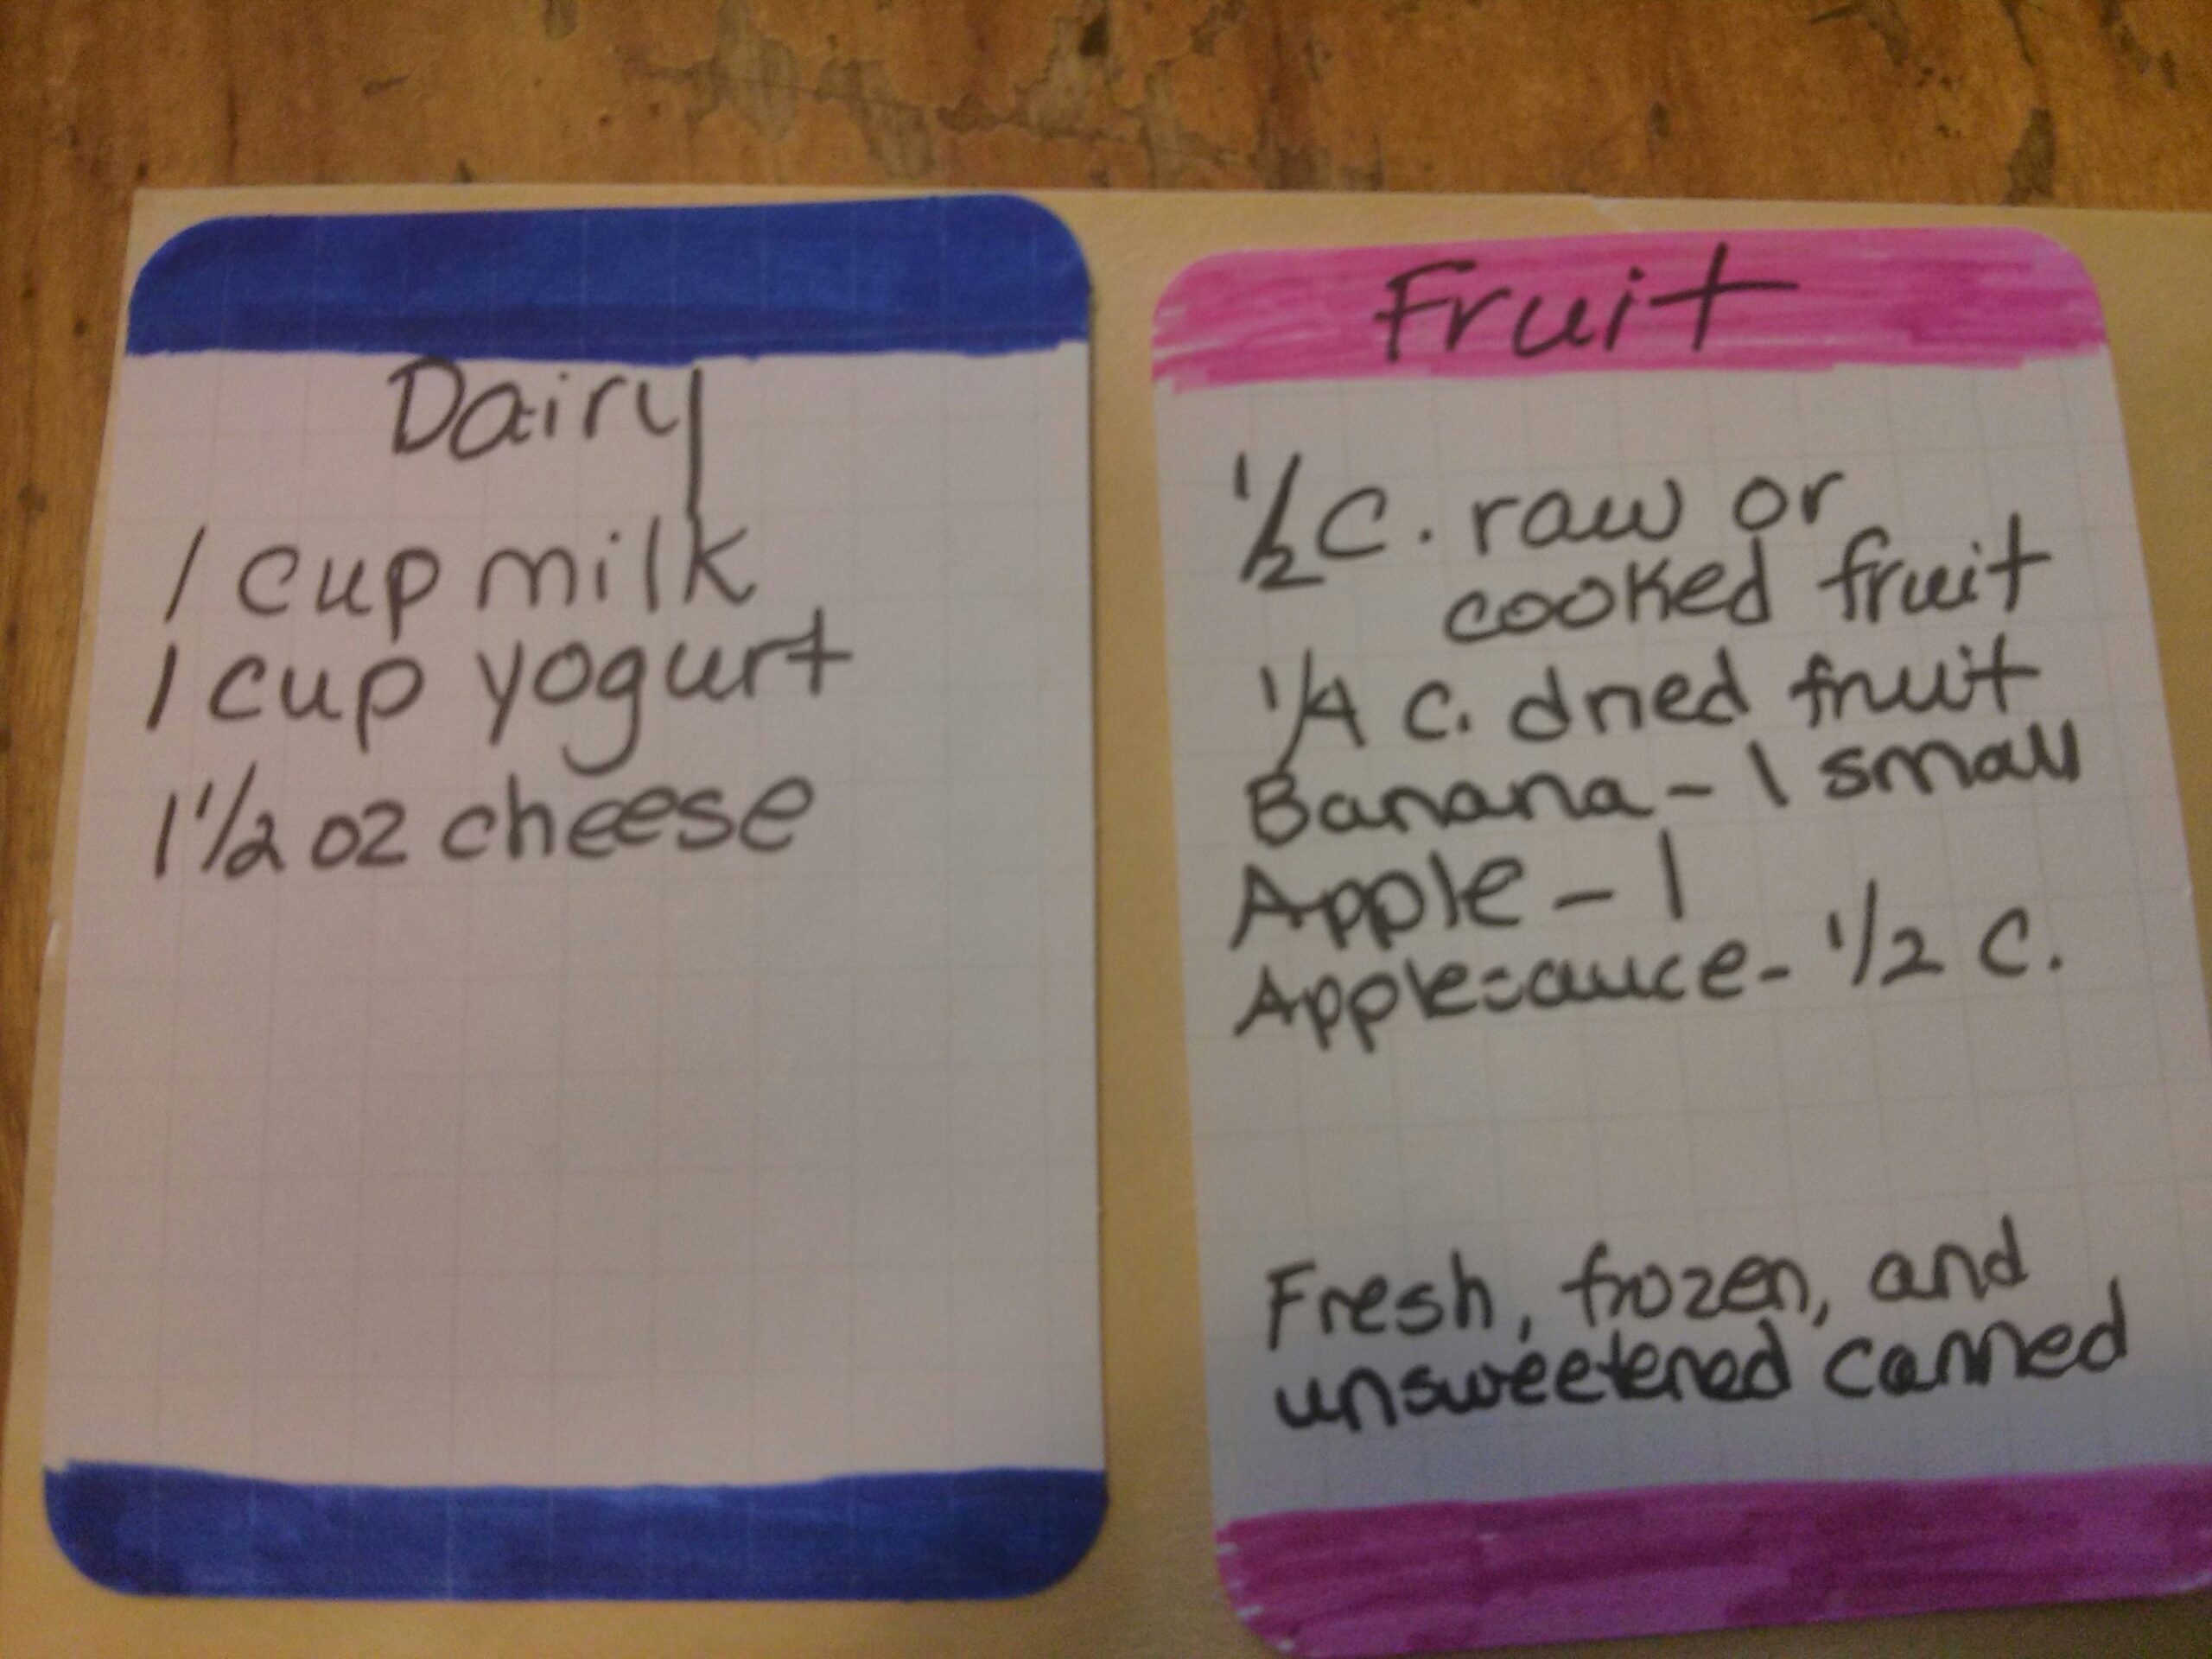 Dairy
1 cup milk
1 cup yogurt
1 1/2 oz cheese
Fruit
1/2 C. raw or
cooked fruit
1/4 c. dried fruit
Banana - 1 small
Apple - 1
Applesauce - 1/2 C.
Fresh, frozen, and
unsweetened canned